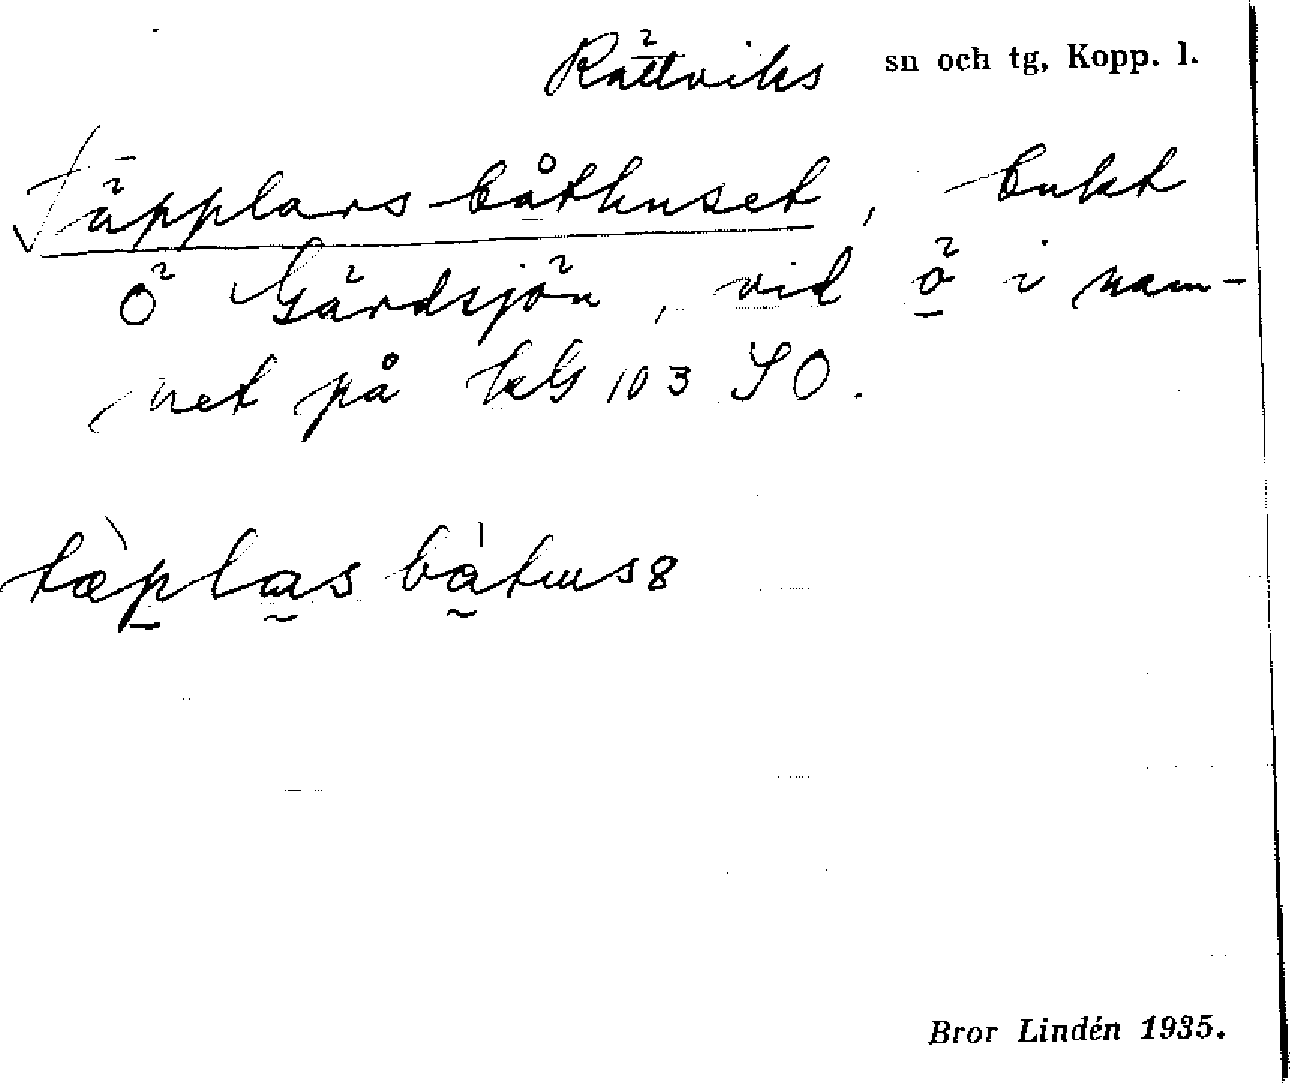 Rättviks sn och tg, Kopp. l.
Täpplars båthuset, bukt
Ö Gärdsjön, vid ö i nam-
net på kbl 103 SO.
tæ̀plas bátus8
Bror Lindén 1935.